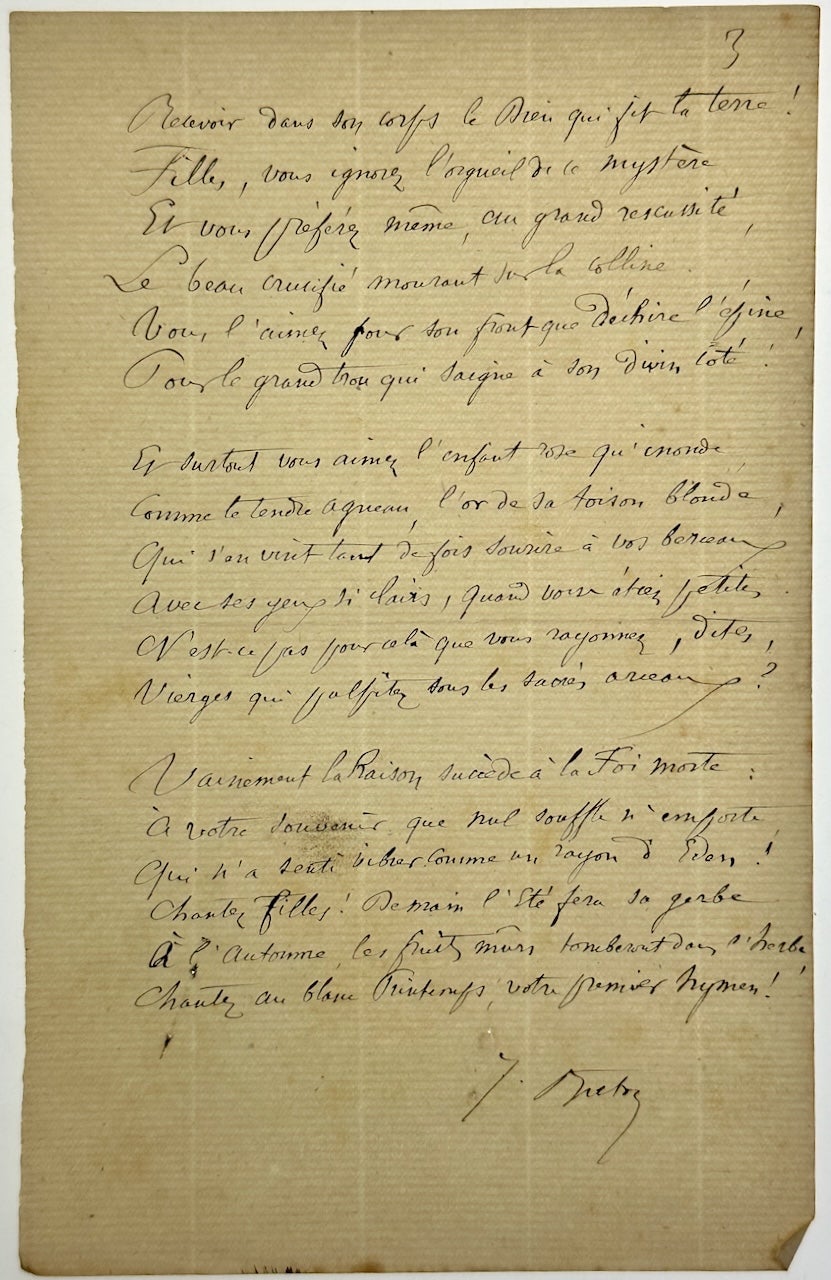 3
Recevoir dans son corps le Dieu qui fit la terre !
Filles, vous ignorez l'orgueil de ce mystère
Et vous préférez même, au grand rescussité,
Le beau crucifié mourant sur la colline.
Vous l'aimez pour son front que déchire l'épine,
Pour le grand trou qui saigne à son divin côté !
Et surtout vous aimez l'enfant rose qu'inonde,
Comme le tendre agneau, l'or de sa toison blonde,
Qui s'en vint tant de fois sourire à vos berceaux
Avec ses yeux si clairs, quand vous étiez petites.
N'est-ce pas pour celà que vous rayonnez, dites,
Vierges qui palpitez sous les sacrés arceaux ?
Vainement la Raison succède à la Foi morte :
À votre souvenir que nul souffle n'emporte,
Qui n'a senti vibrer comme un rayon d'Eden !
Chantez filles ! Demain l'Eté fera sa gerbe
À l'Automne, les fruits mûrs tomberont dans l'herbe
Chantez au blanc Printemps, votre premier hymen !
J. Breton